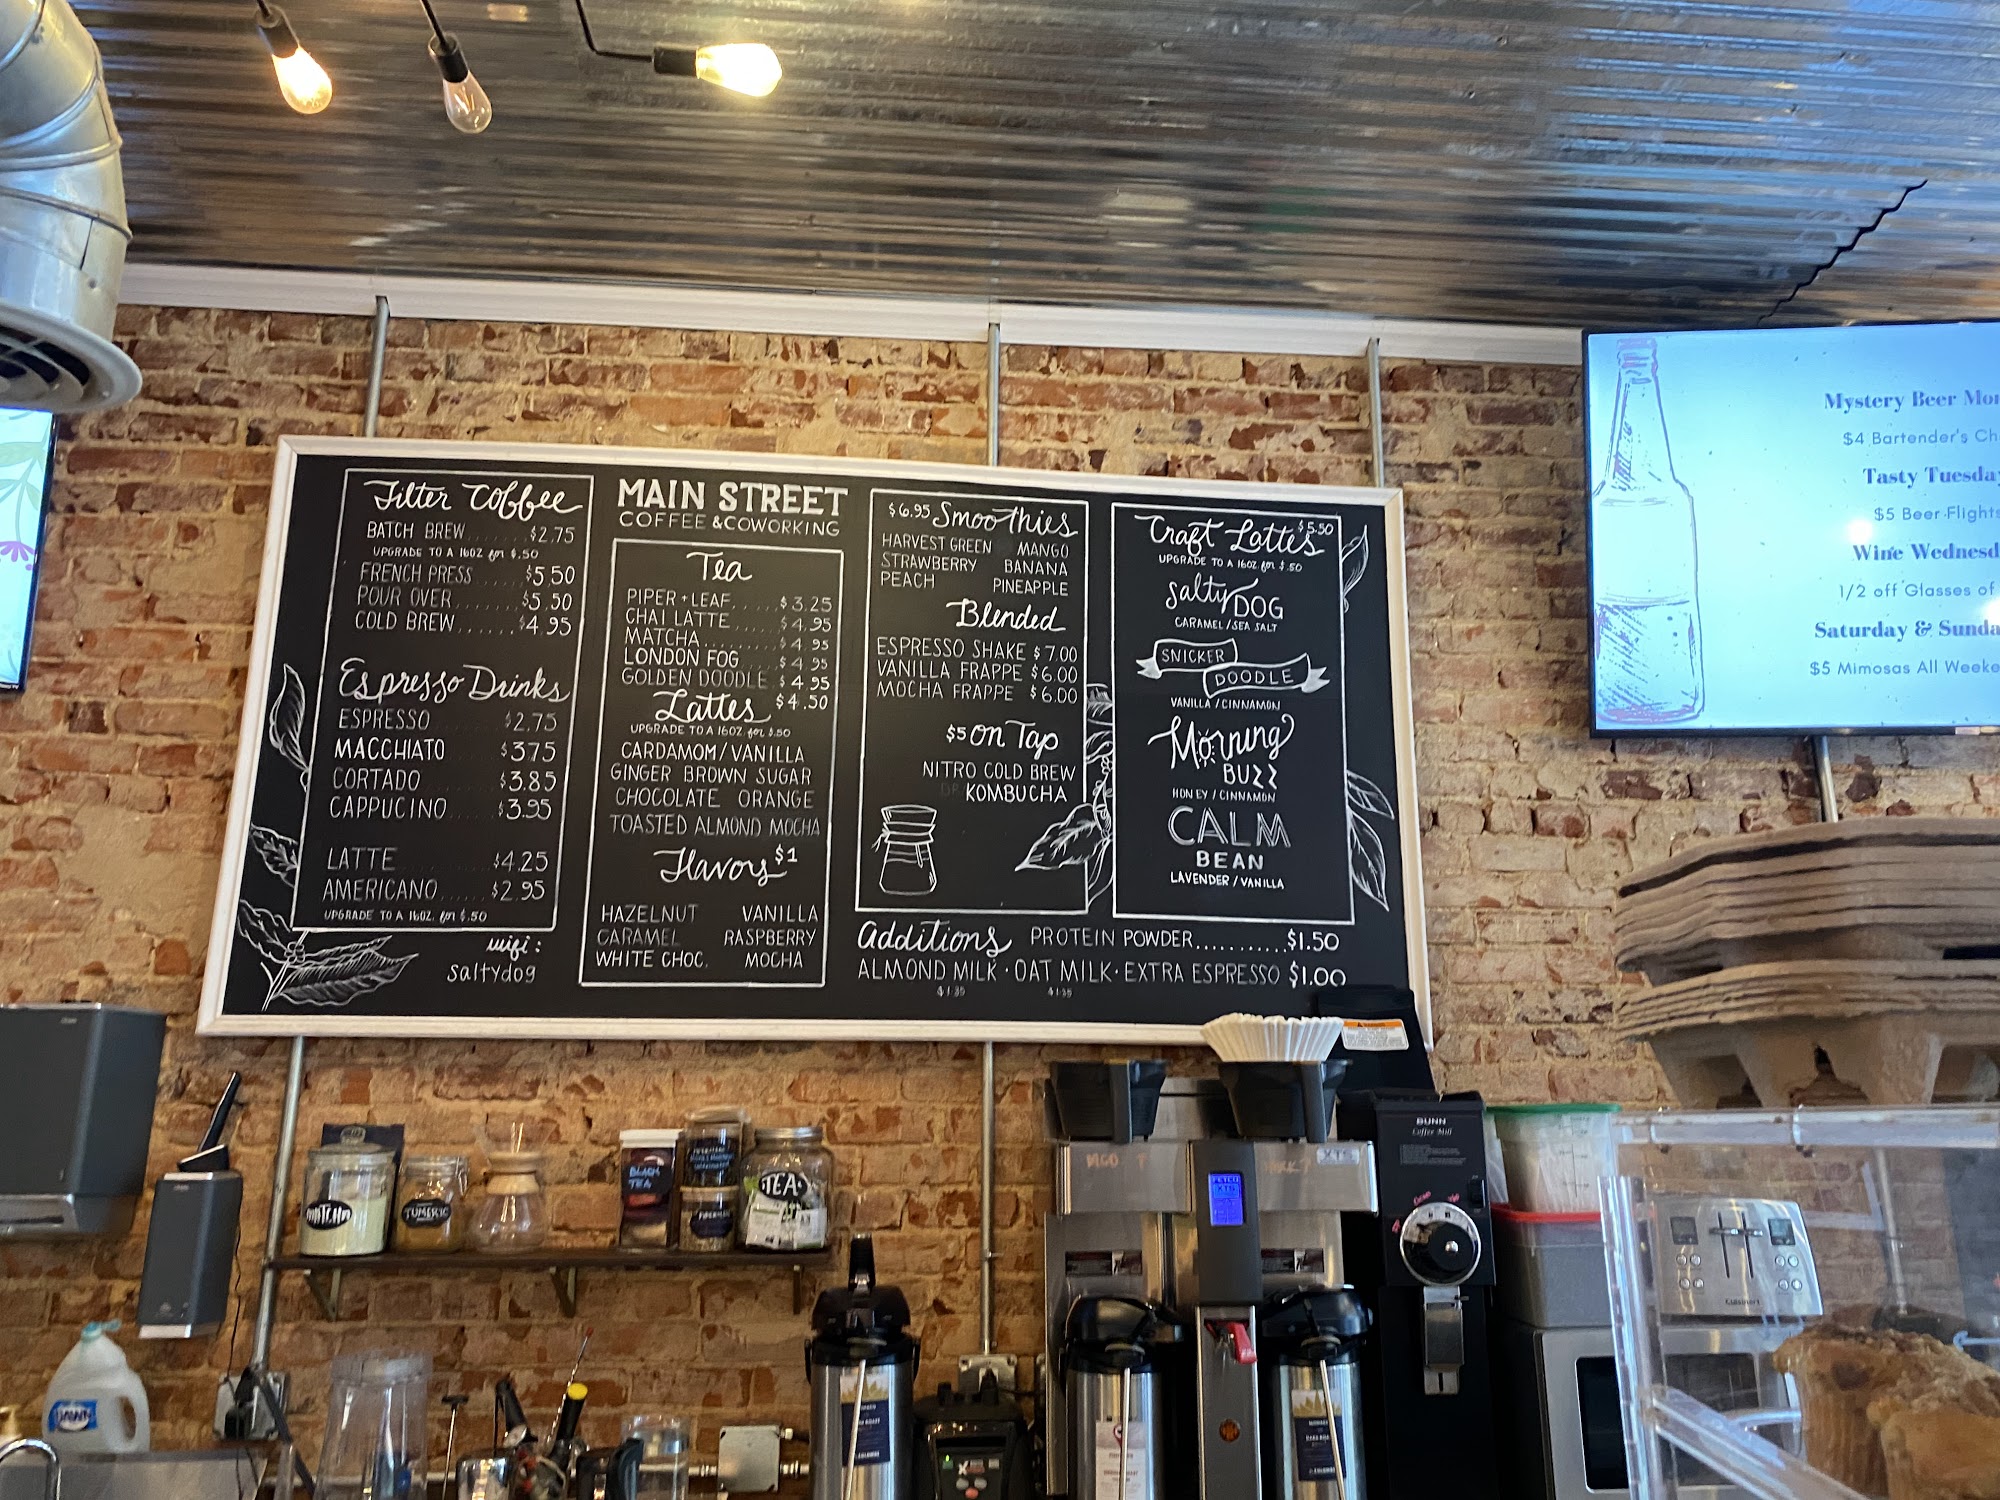 Filter Coffee
BATCH BREW.......$2.75
UPGRADE TO A 16OZ for $.50
FRENCH PRESS.....$5.50
POUR OVER.......$5.50
COLD BREW......$4.95
Espresso Drinks
ESPRESSO $2.75
MACCHIATO $3.75
CORTADO $3.85
CAPPUCINO $3.95
LATTE $4.25
AMERICANO......$2.95
UPGRADE TO A 16OZ. for $.50
wifi:
saltydog
MAIN STREET
COFFEE & COWORKING
Tea
PIPER + LEAF......$3.25
CHAI LATTE $4.95
MATCHA $4.95
LONDON FOG $4.95
GOLDEN DOODLE $4.95
Lattes $4.50
UPGRADE TO A 16OZ. for $.50
CARDAMOM/VANILLA
GINGER BROWN SUGAR
CHOCOLATE ORANGE
TOASTED ALMOND MOCHA
Flavors $1
HAZELNUT VANILLA
CARAMEL RASPBERRY
WHITE CHOC. MOCHA
$6.95 Smoothies
HARVEST GREEN MANGO
STRAWBERRY BANANA
PEACH PINEAPPLE
Blended
ESPRESSO SHAKE $7.00
VANILLA FRAPPE $6.00
MOCHA FRAPPE $6.00
$5 on Tap
NITRO COLD BREW
KOMBUCHA
Craft Lattes $5.50
UPGRADE TO A 16OZ for $.50
Salty DOG
CARAMEL / SEA SALT
SNICKER
DOODLE
VANILLA / CINNAMON
Morning
BUZZ
HONEY / CINNAMON
CALM
BEAN
LAVENDER / VANILLA
Additions PROTEIN POWDER...........$1.50
ALMOND MILK · OAT MILK · EXTRA ESPRESSO $1.00
Mystery Beer Mon
$4 Bartender's Ch
Tasty Tuesday
$5 Beer Flights
Wine Wednesd
1/2 off Glasses of
Saturday & Sunda
$5 Mimosas All Weeke
MATCHA
TUMERIC
BLACK
TEA
TEA
DAWN
FETCO
XTS
BUNN
Coffee Mill
Cuisinart